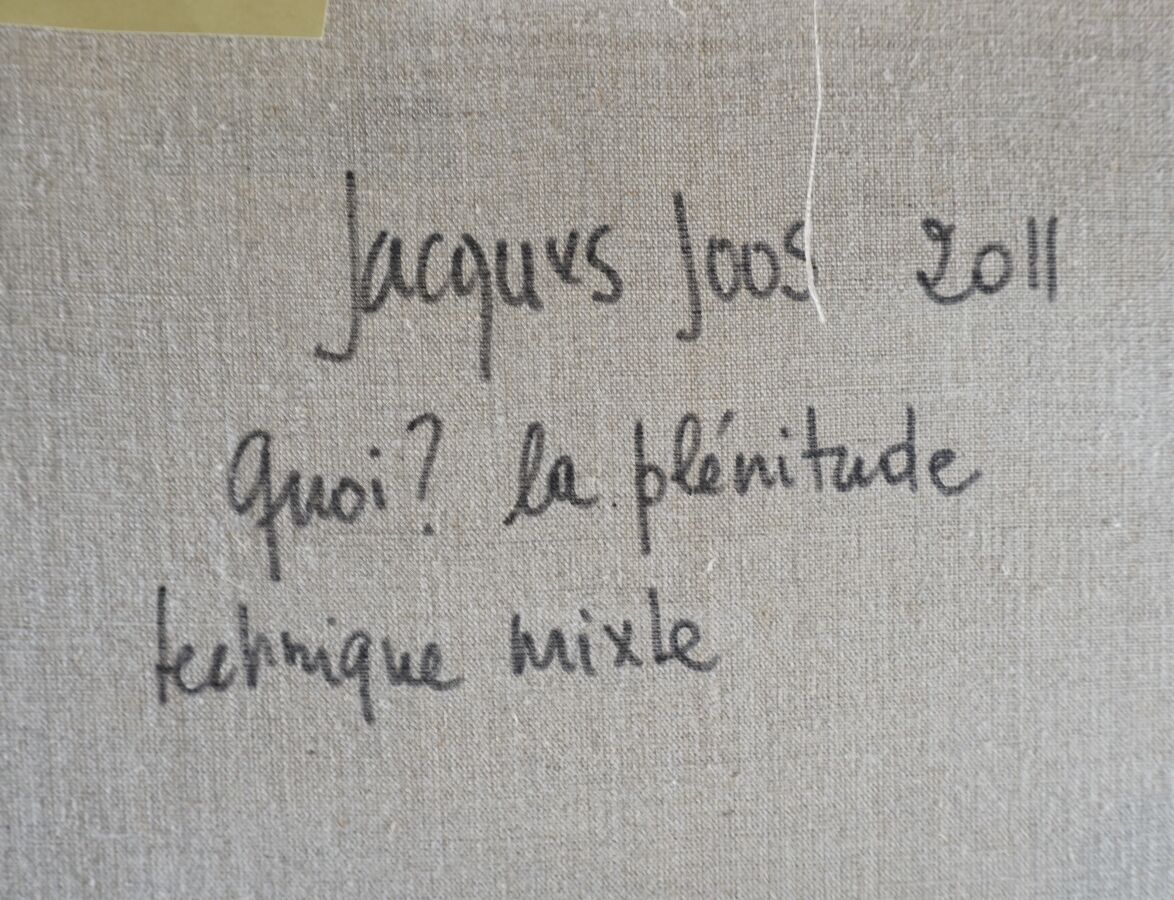 Jacques Joos 2011
Quoi? la plénitude
technique mixte